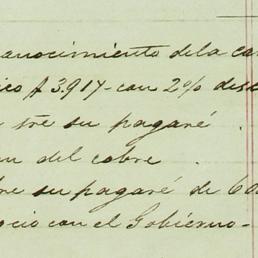 anocimiento dela ca
ico $ 3.917- con 2% des
tre su pagaré.
del cobre.
re su pagaré de 60
ocio con el Gobierno-